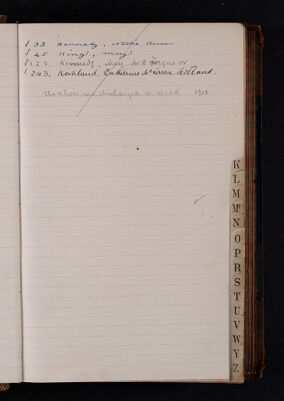 33 Kennedy,
45 King, Mary
123. Kennedy, May
243. Kirkland, Catherine
The above are discharged or dead. 1912.
K
L
M
Mc
N
O
P
R
S
T
U
V
W
Y
Z